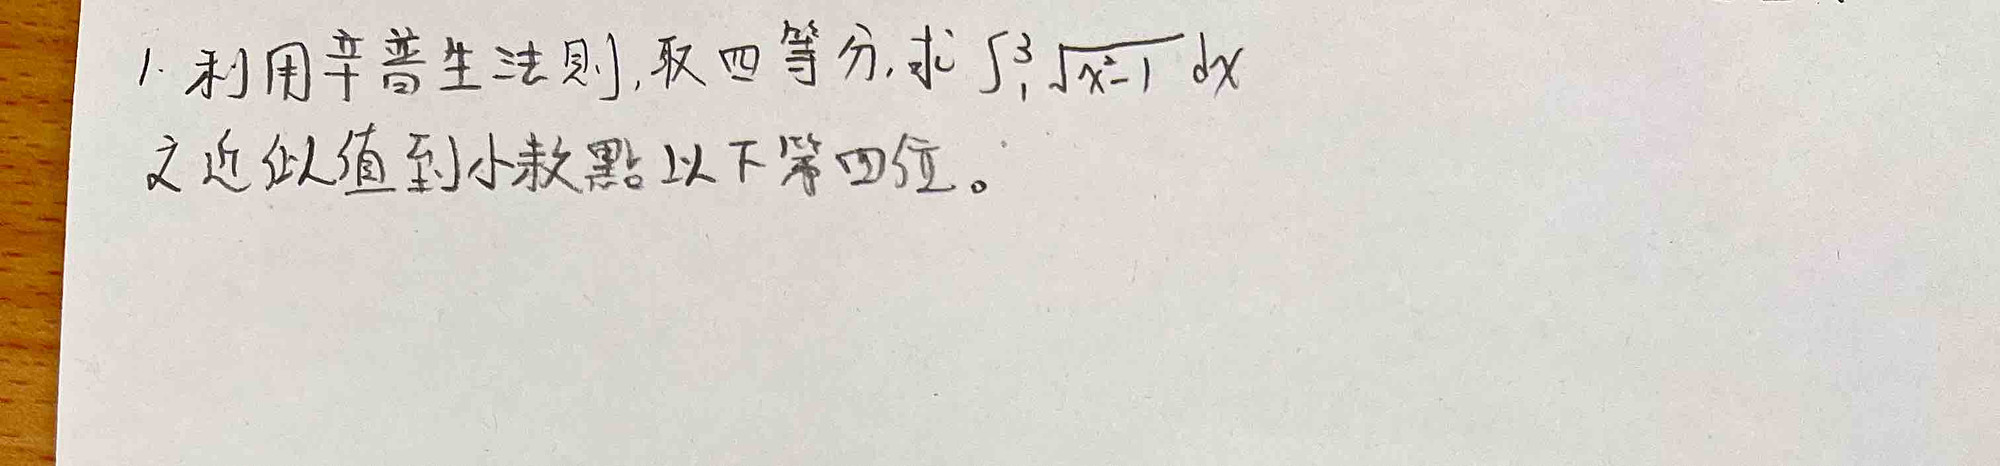 1. 利用辛普生法則,取四等分,求 ∫₁³ √(x²-1) dx
之近似值到小數點以下第四位。